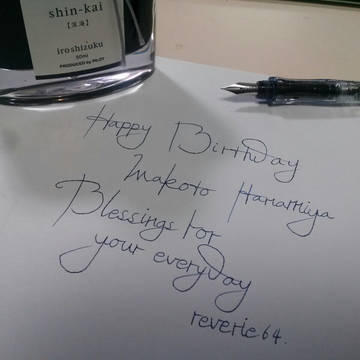 shin-kai
【深海】
iroshizuku
50ml
PRODUCED by PILOT
Happy Birthday
Makoto Hanamiya
Blessings for
your everyday
reverie64.